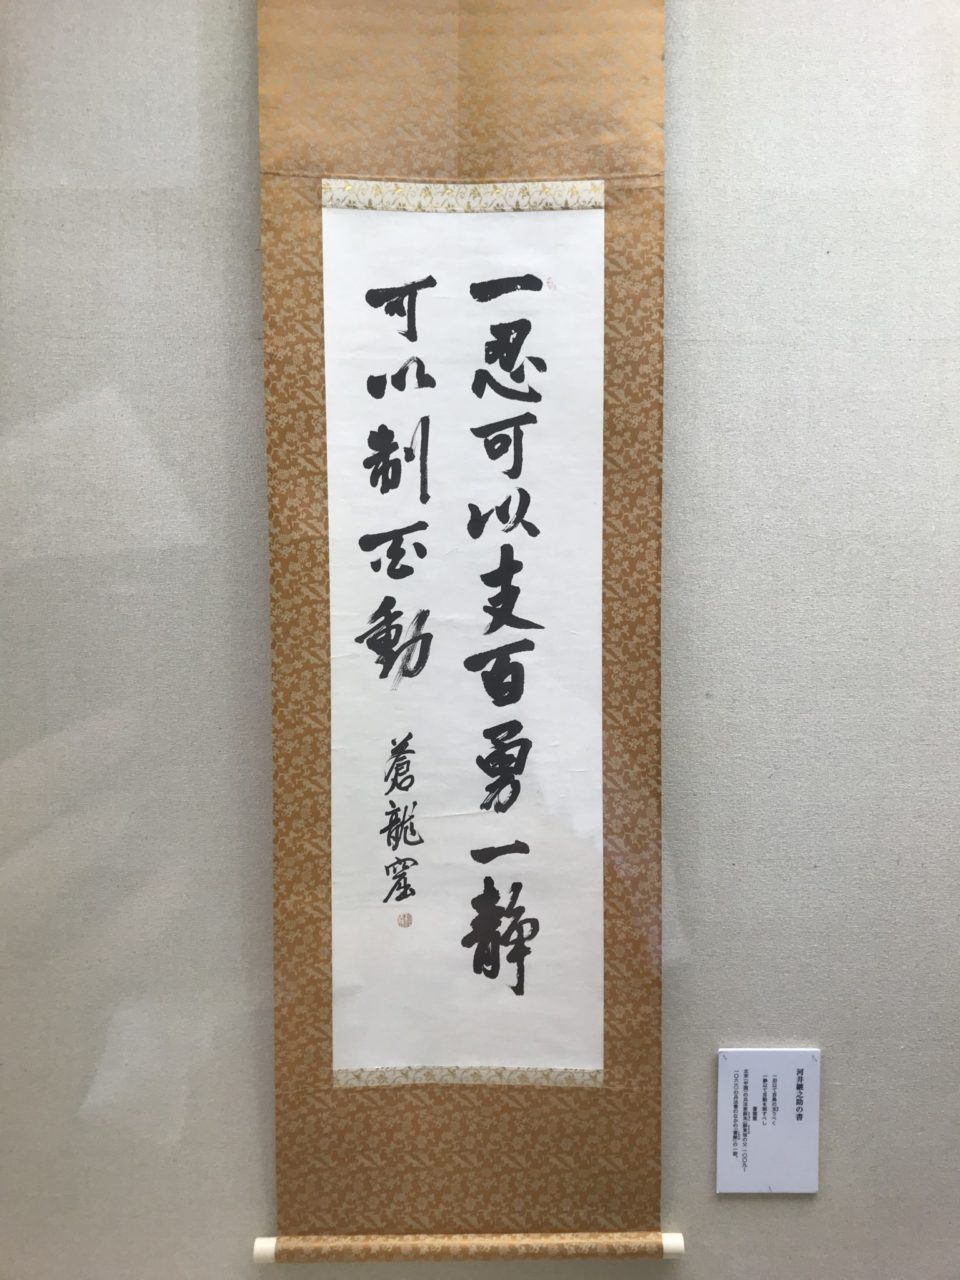 一忍可以支百勇一静
可以制百動
蒼龍窟
河井継之助の書
一忍以て百勇を支うべく
一静以て百動を制すべし
蒼龍窟